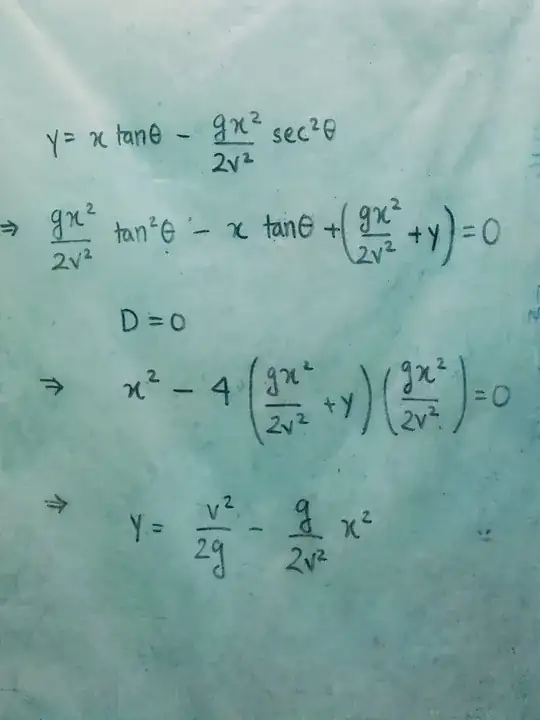 y = x tanθ − gx²/2v² sec²θ
⇒ gx²/2v² tan²θ − x tanθ + (gx²/2v² + y) = 0
D = 0
⇒ x² − 4 (gx²/2v² + y) (gx²/2v²) = 0
⇒ y = v²/2g − g/2v² x²